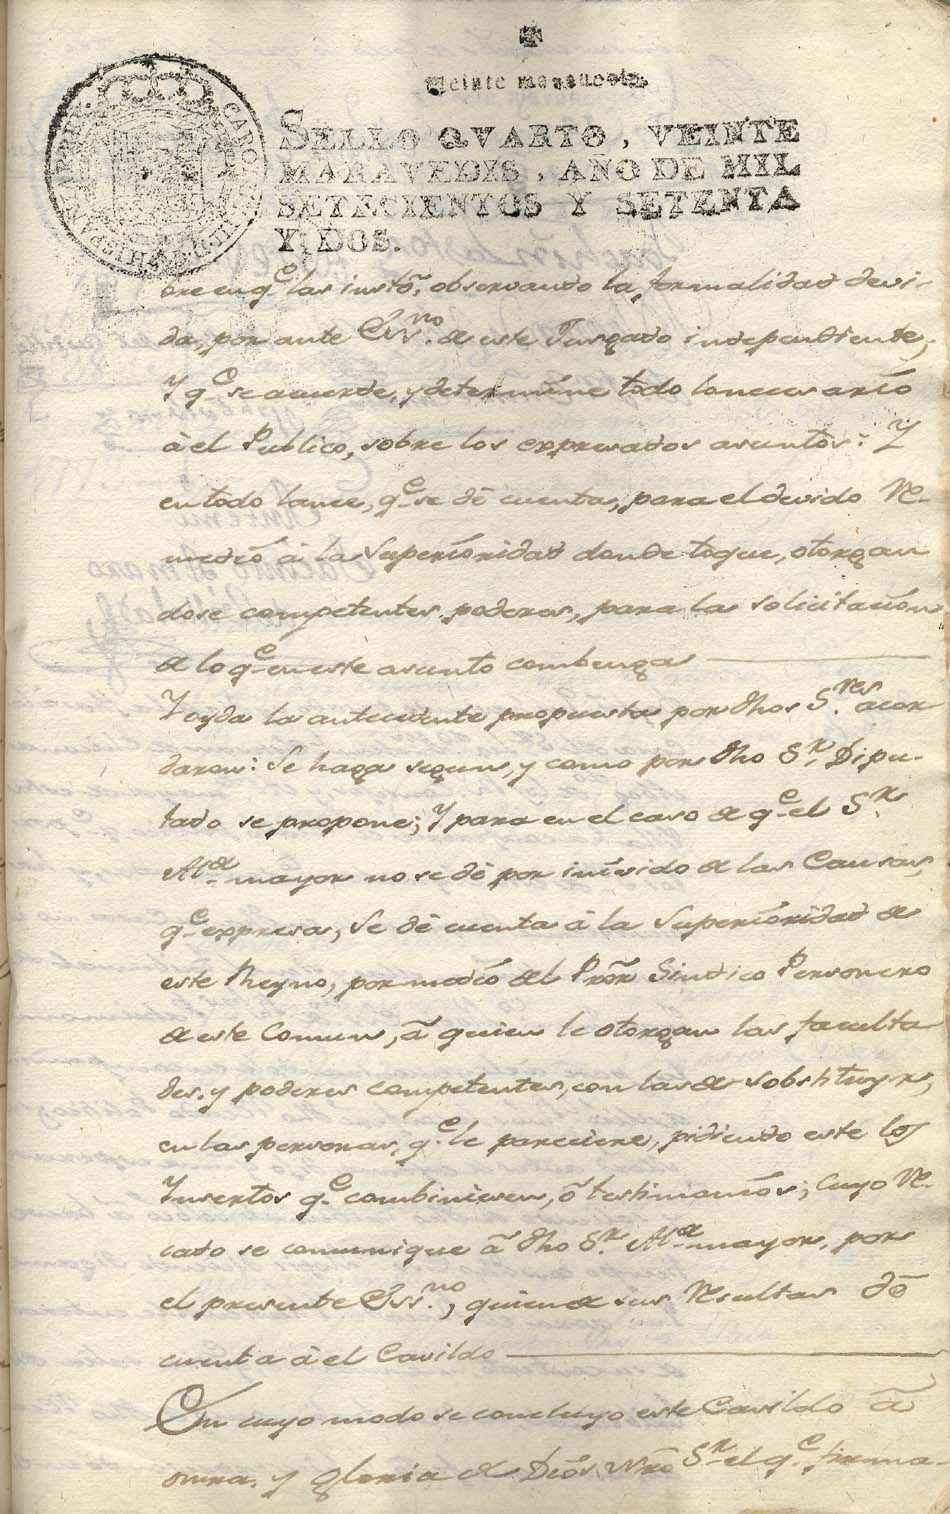 Veinte maravedis.
SELLO QVARTO, VEINTE
MARAVEDIS, AÑO DE MIL
SETECIENTOS Y SETENTA
Y DOS.
CAROLVS III D G HISPANIAR REX
bre en q.e las insto, observando la formalidad devi-
da, por ante Ess.no de este Jusgado independiente,
Y q.e se acuerde, y determine todo lo necesario
à el Publico, sobre los expresados asuntos: Y
en todo lance, q.e se dè cuenta, para el devido Re-
medio à la Superioridad donde toque, otorgan
dose competentes poderes, para la solicitacion
de lo q.e en este asunto combenga
Y oyda la antecedente propuesta por dhos S.res acor
daron: Se haga segun, y como por dho S.r Dipu-
tado se propone; Y para en el caso de q.e el S.r
Al.de mayor no se dè por inivido de las Causas,
q.e expresa, Se dè cuenta à la Superioridad de
este Reyno, por medio del Pror Sindico Personero
de este Comun, à quien le otorgan las faculta
des, y poderes competentes, con las de sobstituyr,
en las personas, q.e le pareciere, pidiendo este los
Insertos q.e combiniesen, ò testimonios; Cuyo Re-
cado se comunique à dho S.r Al.de mayor, por
el presente Ess.no, quien de sus Resultas dè
cuenta à el Cavildo
En cuyo modo se concluyo este Cavildo à
onrra, y gloria de Dios Nro S.r el q.e firma-